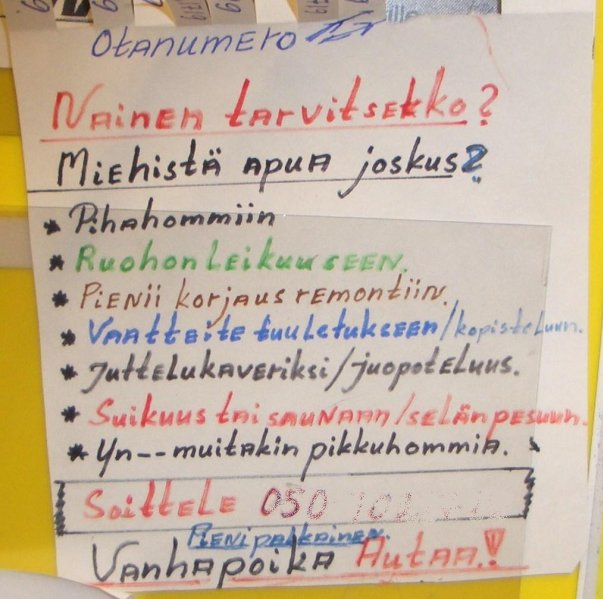 Otanumero
Nainen tarvitsekko?
Miehistä apua joskus?
* Pihahommiin
* Ruohon leikuuseen.
* Pienii korjausremontiin.
* Vaatteite tuuletukseen/kopisteluun.
* Juttelukaveriksi/juopoteluus.
* Suikuus tai saunaan/selän pesuun.
* Yn-- muitakin pikkuhommia.
Soittele 050
Pienipalkkainen.
Vanhapoika Autaa!